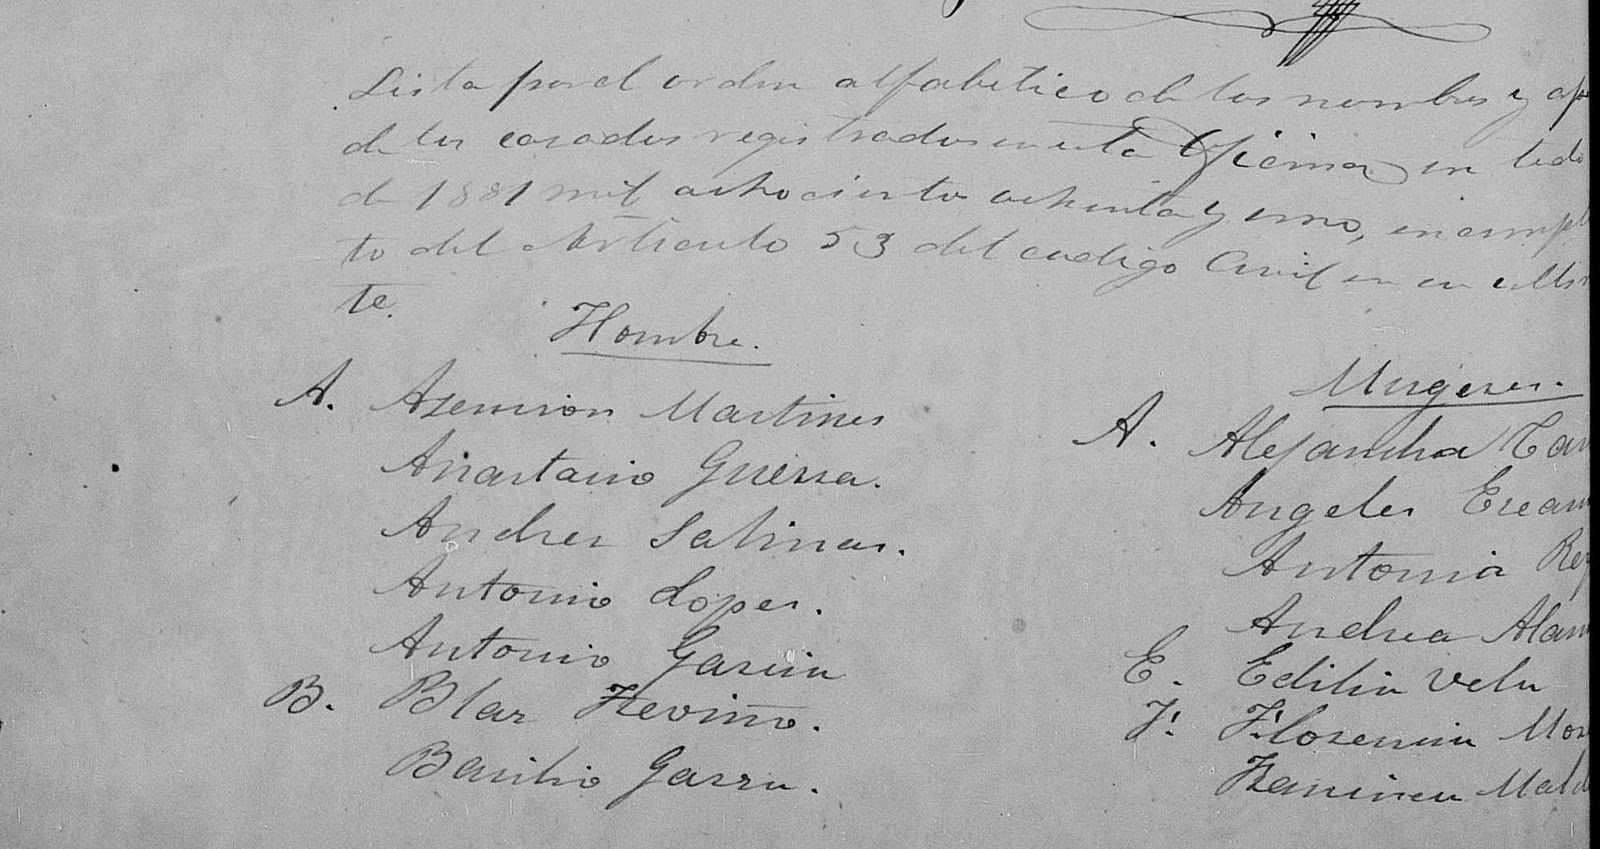 Lista por el orden alfabetico de los nombres y ape
de los casados registrados en esta Oficina en todo
de 1881 mil ochociento ochenta y uno, en cumpl
to del Articulo 53 del codigo Civil en su
te.
Hombre.
Mugeres.
A. Asencion Martines
Anastacio Guerra.
Andres Salinas.
Antonio Lopes.
Antonio Garcia
B. Blas Treviño.
Basilio Garza.
A. Alejandra
Angeles
Antonia Rey
Andrea Alam
E. Edilia Vela
F. Florencia Mor
Francisca Mald